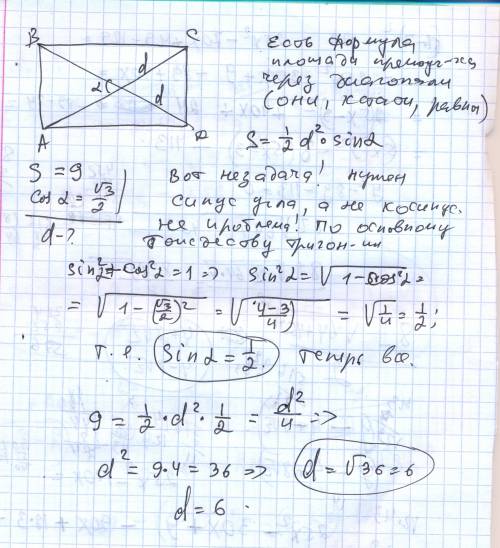 B C
d
α
d
A D
Есть формула
площади прямоуг-ка
через диагонали
(они, кстати, равны)
S = 1/2 d² · sinα
S = 9
cos α = √3/2
d - ?
Вот незадача! нужен
синус угла, а не косинус.
не проблема! По основному
тождеству тригон-ии
sin²α + cos²α = 1 => sin²α = √(1 - cos²α) =
= √(1 - (√3/2)²) = √((4-3)/4) = √(1/4) = 1/2;
т.е. sin α = 1/2. теперь все.
9 = 1/2 · d² · 1/2 = d²/4 =>
d² = 9·4 = 36 => d = √36 = 6
d = 6.